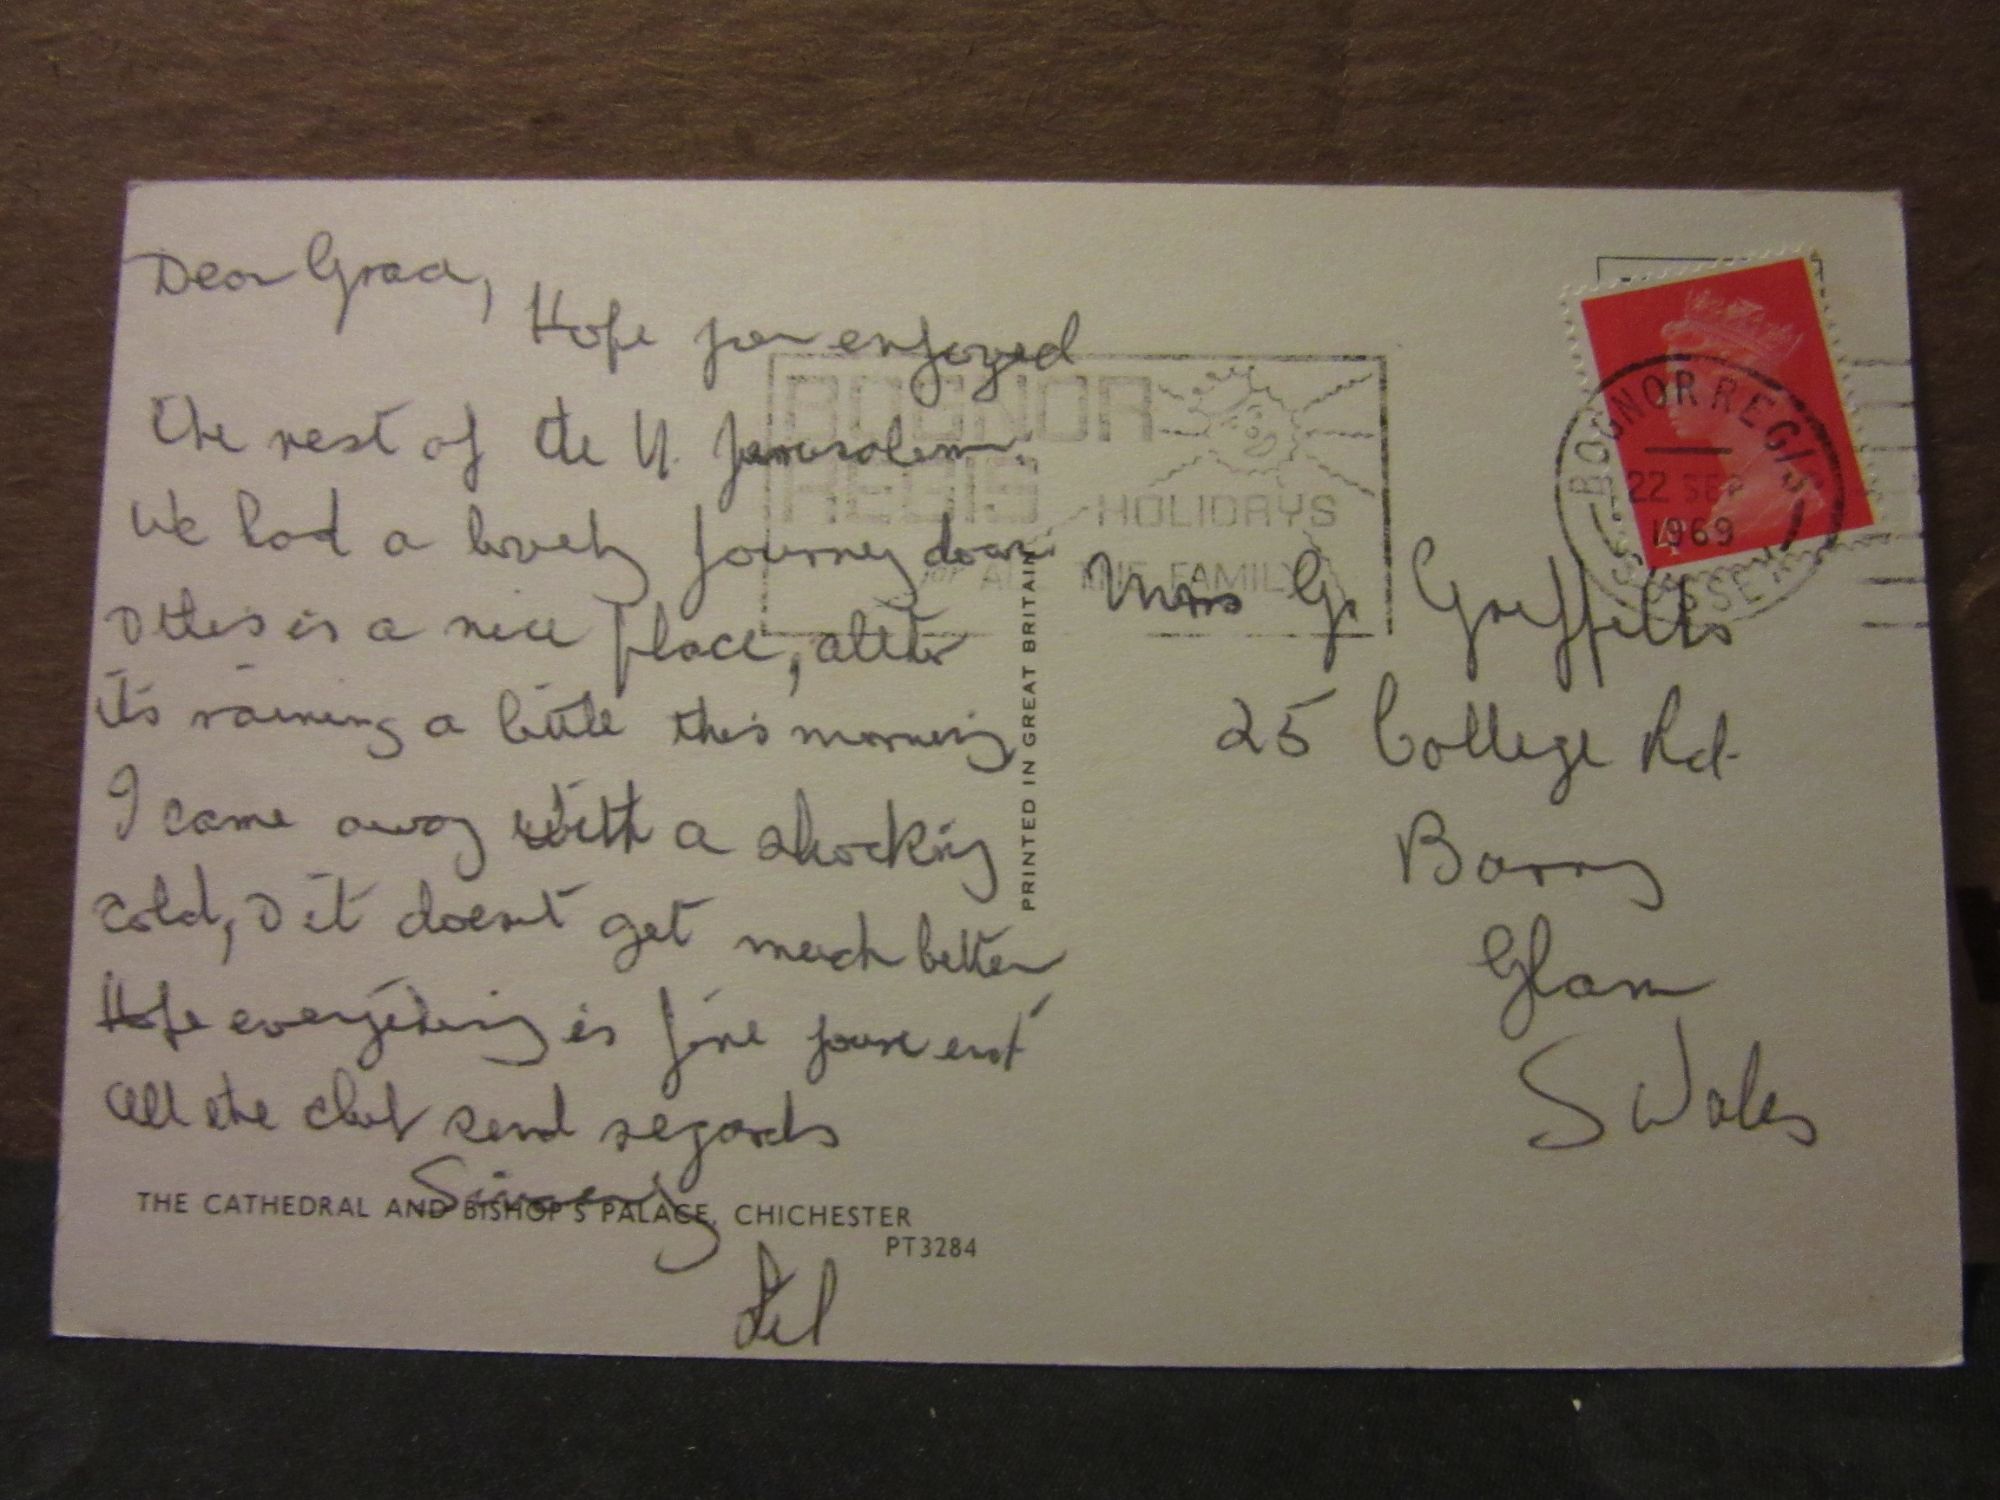 Dear Grace,
Hope you enjoyed
the rest of the N. Jerusalem.
We had a lovely journey down
& this is a nice place, altho
it's raining a little this morning
I came away with a shocking
cold, & it doesn't get much better
Hope everything is fine your end
All the club send regards
Sincerely
THE CATHEDRAL AND BISHOP'S PALACE, CHICHESTER
PT3284
PRINTED IN GREAT BRITAIN
BOGNOR
REGIS
HOLIDAYS
for ALL THE FAMILY
BOGNOR REGIS
22 SEP
1969
SUSSEX
4
Mrs G. Griffiths
25 College Rd.
Barry
Glam
S Wales